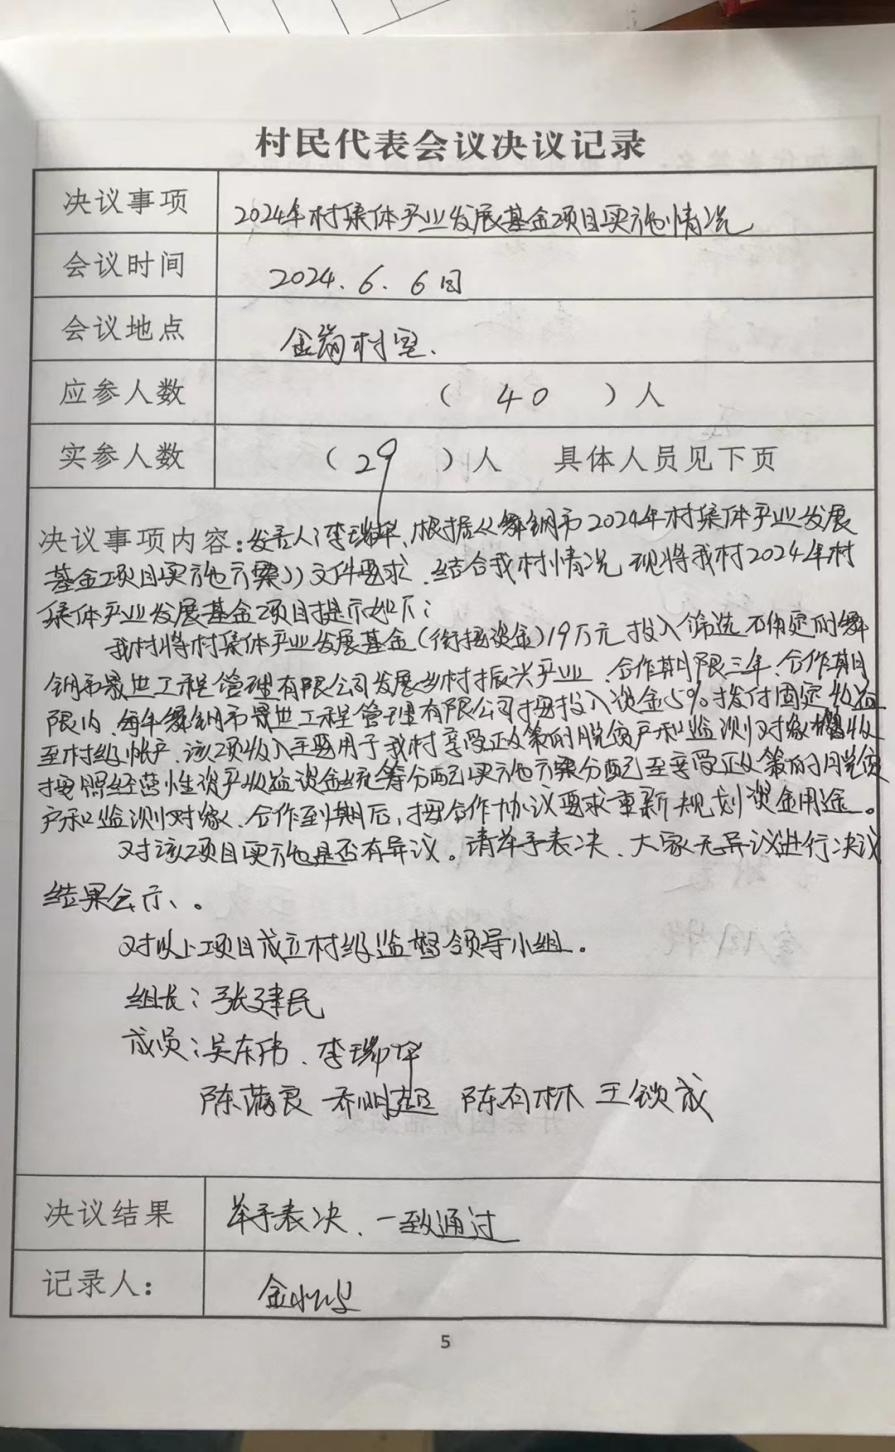 村民代表会议决议记录
决议事项 2024年村集体产业发展基金项目实施情况
会议时间 2024.6.6日
会议地点 金岗村室.
应参人数 ( 40 ) 人
实参人数 ( 29 ) 人 具体人员见下页
决议事项内容:发言人:李瑞华,根据《舞钢市2024年村集体产业发展
基金项目实施方案》文件要求,结合我村情况 现将我村2024年村
集体产业发展基金项目提示如下:
我村将村集体产业发展基金(衔接资金)19万元投入筛选 的舞
钢市晟世工程管理有限公司发展乡村振兴产业、合作期限三年、合作期
限内、每年舞钢市晟世工程管理有限公司按投入资金5%拨付固定收益
至村级帐户、该项收入主要用于我村享受政策的脱贫户和监测对象增收
按照经营性资产收益资金统筹分配实施方案分配至享受政策的脱贫
户和监测对象、合作到期后,按合作协议要求重新规划资金用途。
对该项目实施是否有异议。请举手表决、大家无异议进行决议
结果公示、。
对以上项目成立村级监督领导小组。
组长:张建民
成员:吴东伟、李瑞华
陈满良 乔明超 陈有林 王锁成
决议结果 举手表决、一致通过
记录人: 金
5